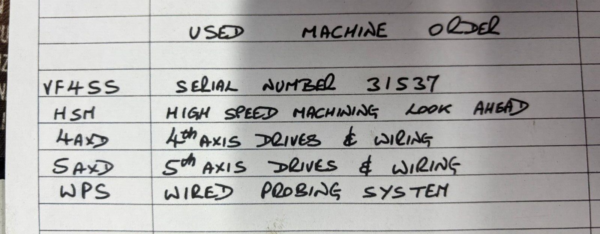 USED MACHINE ORDER
VF4SS SERIAL NUMBER 31537
HSM HIGH SPEED MACHINING LOOK AHEAD
4AXD 4th AXIS DRIVES & WIRING
5AXD 5th AXIS DRIVES & WIRING
WPS WIRED PROBING SYSTEM